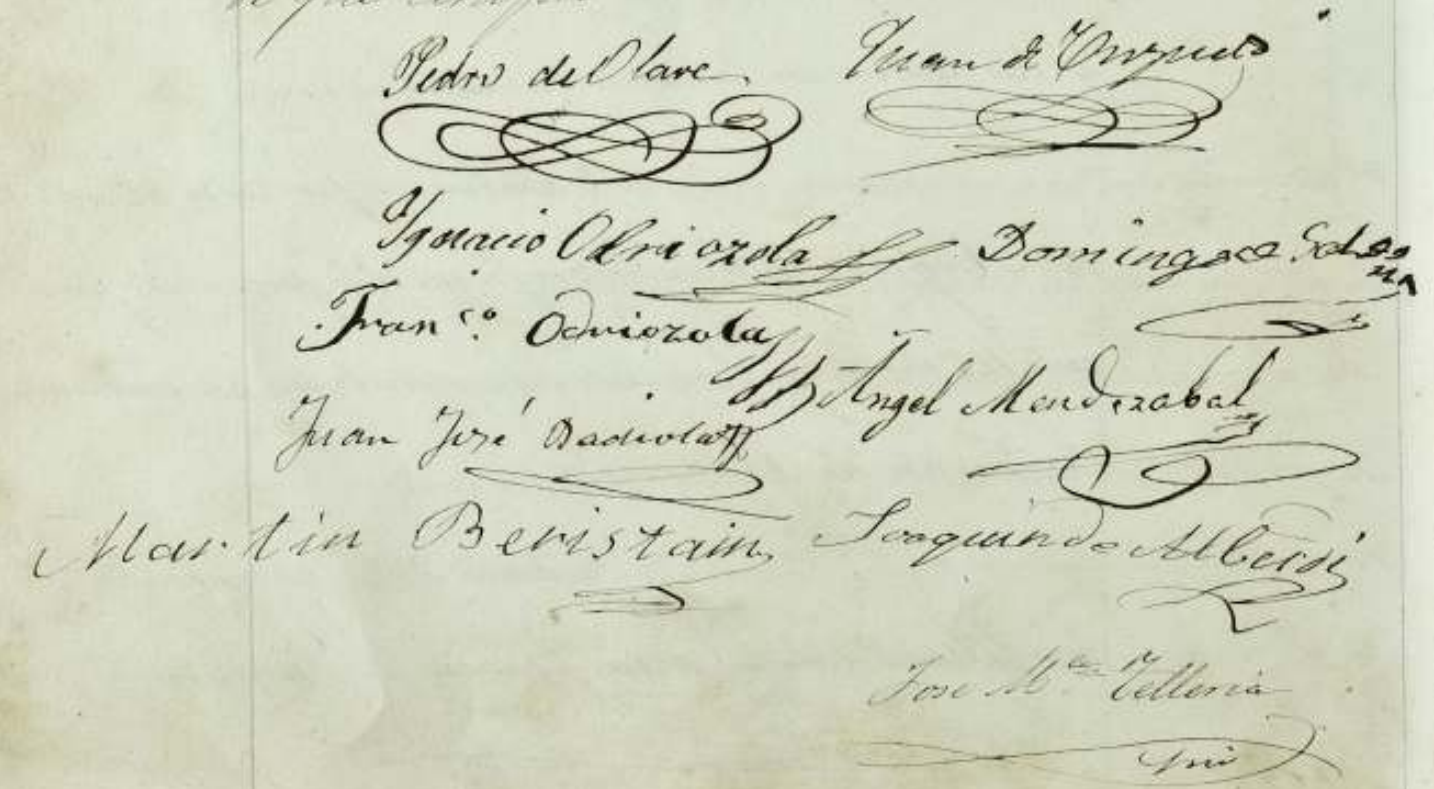 Pedro de Olave Juan de
Ygnacio Odriozola Domingo de
Fran.co Odriozola
Angel Mendizabal
Juan José Radiola
Martin Beristain Joaquin de Alberdi
Jose M.a Telleria